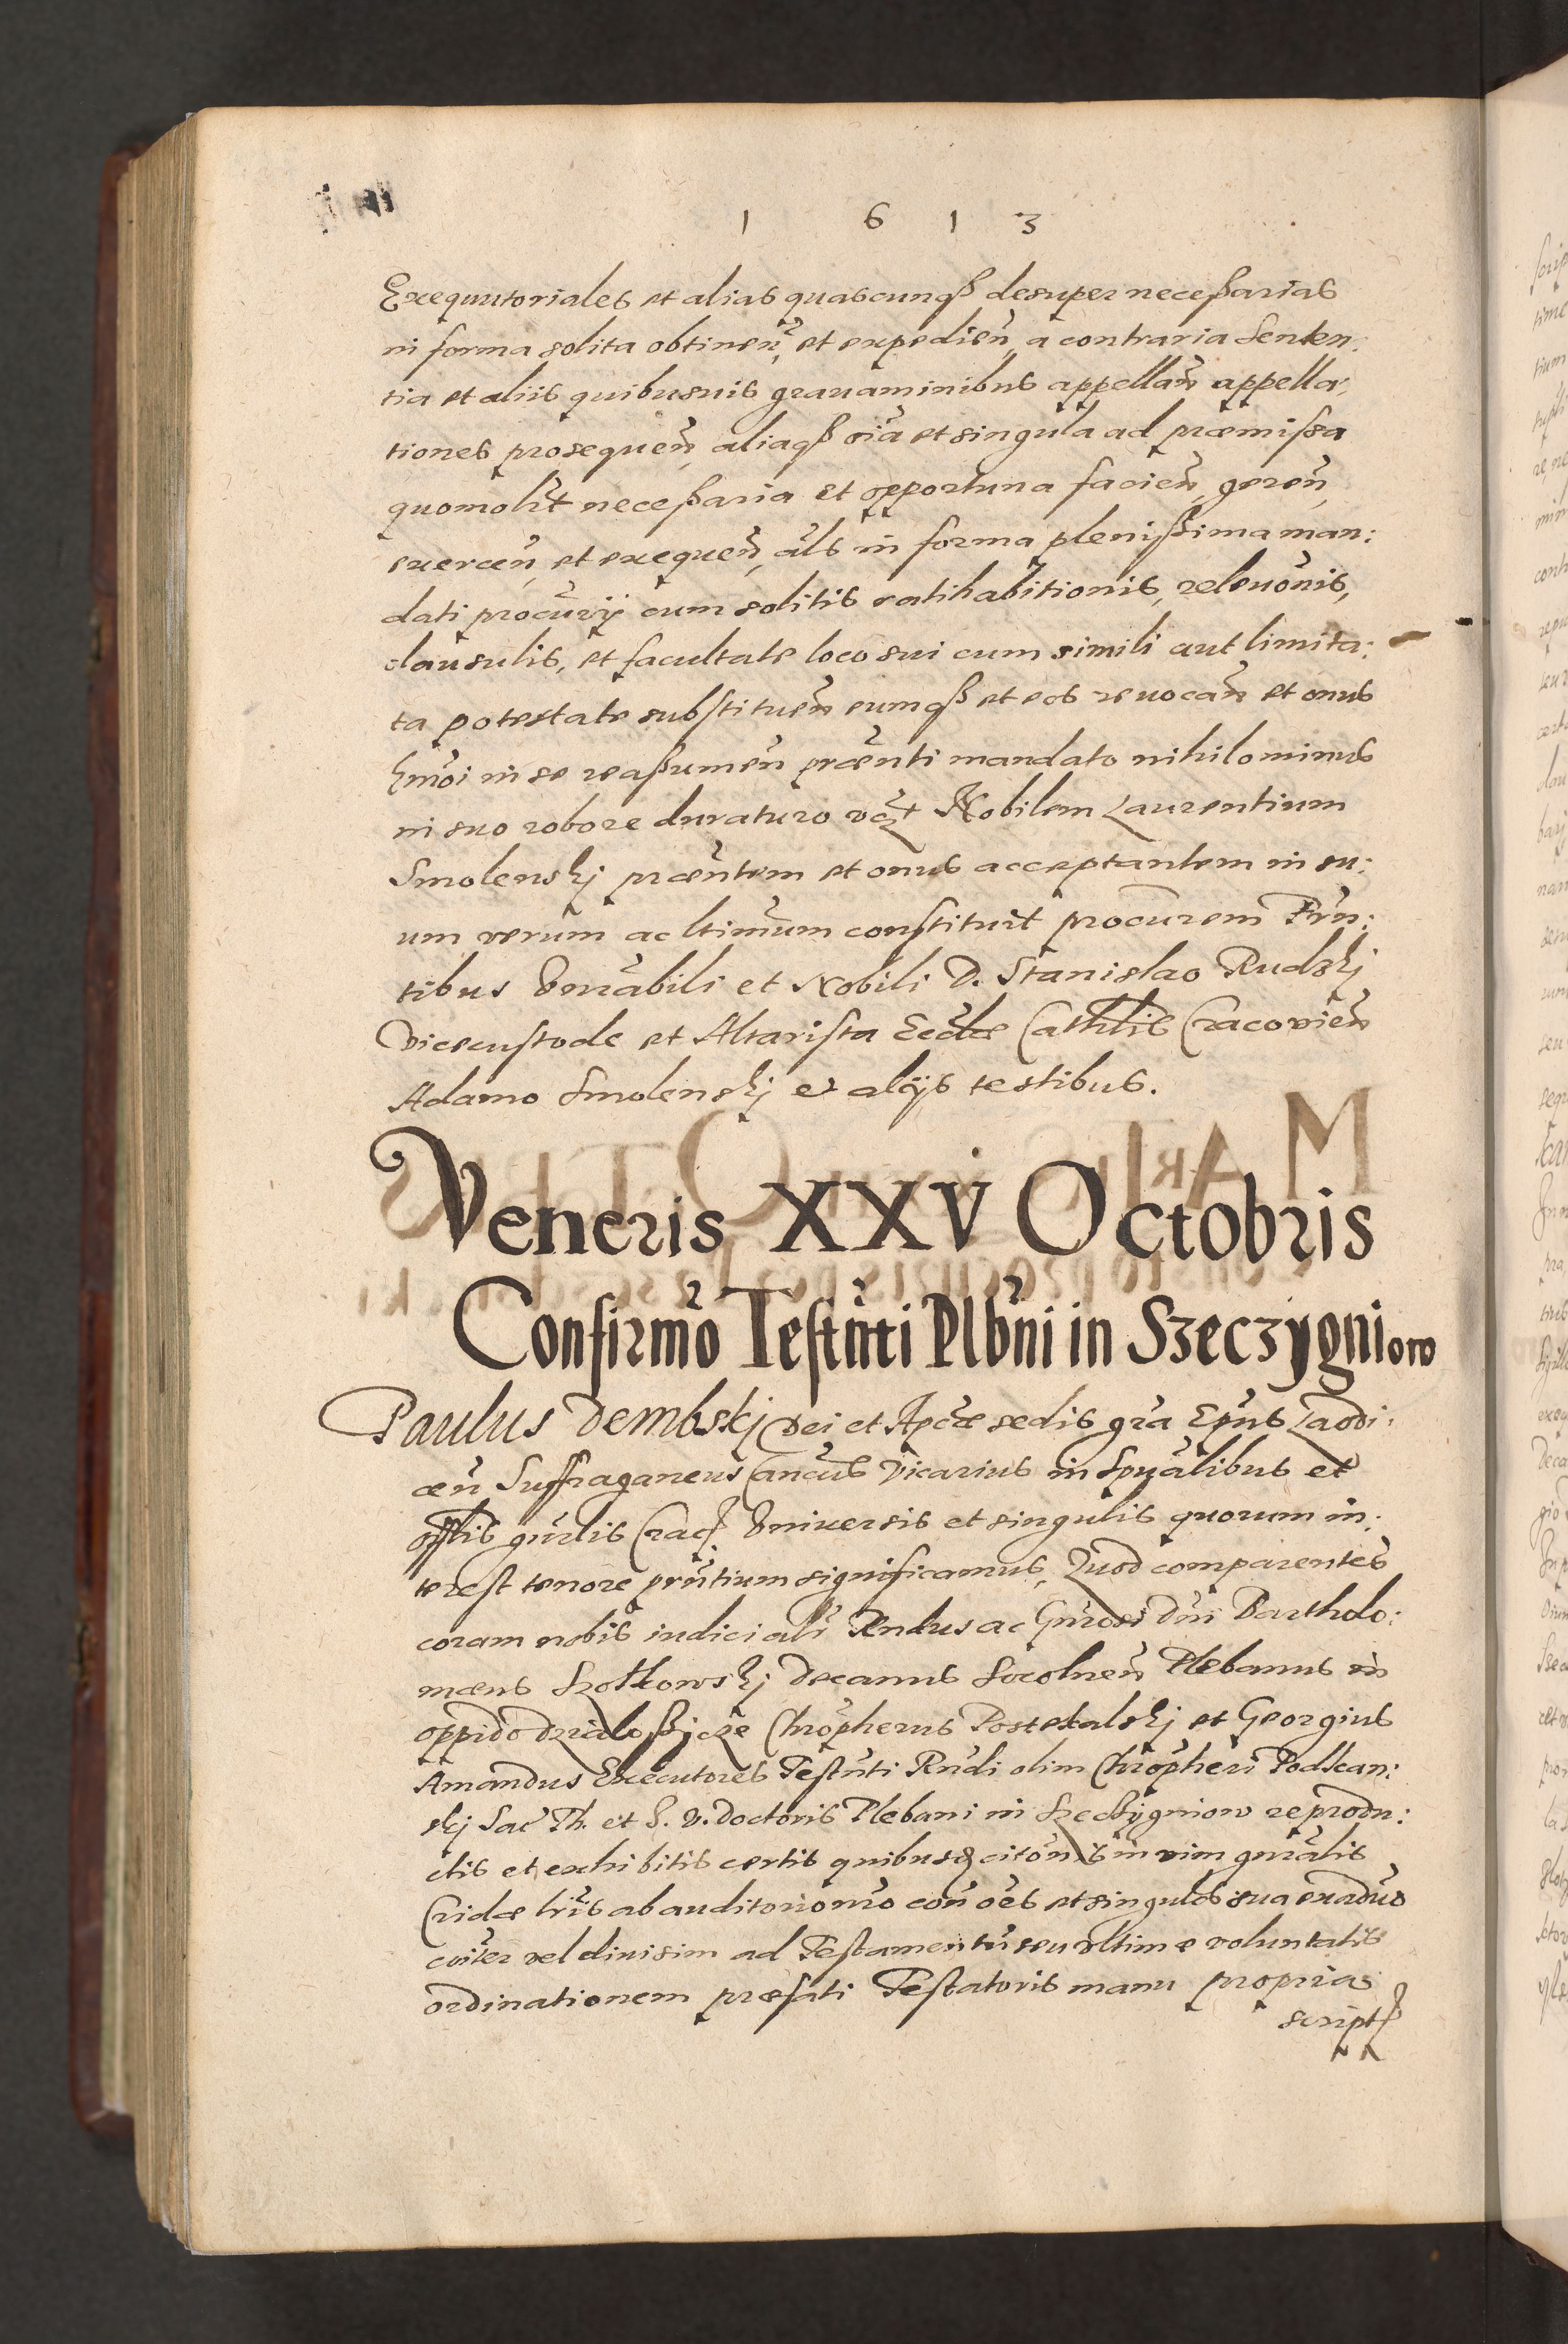 1 6 1 3
Exequutoriales et alias quascunqȝ desuper neceßarias
in forma solita obtinen̄, et expedien̄, a contraria senten:
tia et aliis quibusuis grauaminibus appellan̄ appella:
tiones prosequen̄, aliaqȝ oīa et singula ad præmißa
quomolt̄ neceßaria et opportuna facien̄, geren̄,
exercen̄, et exequen̄, al̄s in forma plenißima man:
dati procūrij cum solitis ratihabitionis, releuōnis,
clausulis, et facultate loco sui cum simili aut limita:
ta potestate substituen̄ eumqȝ et eos reuocan̄ et onus
hmōi in se reaßumen̄ præn̄ti mandato nihilominus
in suo robore duraturo vcȝt Nobilem Laurentium
Smolenskj præn̄tem et onus acceptantem in su:
um verum ac ltīmum constituit procūrem Prn̄:
tibus Venrābili et Nobili D. Stanislao Rudskj
Vicecustode et Altarista Eccl̄æ Cathl̄is Cracovien̄
Adamo Smolenskj et alijs testibus.
Veneris XXV Octobris
Confirmō Testn̄ti Plbn̄i in Szeczygniow
Paulus Dembskj Dei et Apcæ sedis grā Epūs Laodi:
cen̄ Suffraganeus Cancūs Vicarius in Spūalibus et
offl̄is gn̄rlis Crac Vniuersis et singulis quorum in:
terest tenore prn̄tium significamus, Quod comparentes
coram nobis iudicialr̄ Rndus ac Gn̄rosi Dn̄i Bartholo:
mæus Szotkowskj Decanus Socolnen̄ Plebanus in
oppido Dzialoßyce Chrōpherus Postekalskj et Georgius
Amandus Executores Testn̄ti Rn̄di olim Chrōpheri Podskan:
skj Sac Th. et I. V. Doctoris Plebani in Szeczygniow reprodu:
ctis et exhibitis certis quibusdam citōnis in vim gnrālis
Cridæ lr̄is ab auditorio nrō con̄ oēs et singulos sua
cūiter vel diuisim ad Testamentū seu vltimæ voluntatis
ordinationem præfati Testatoris manu propria
script